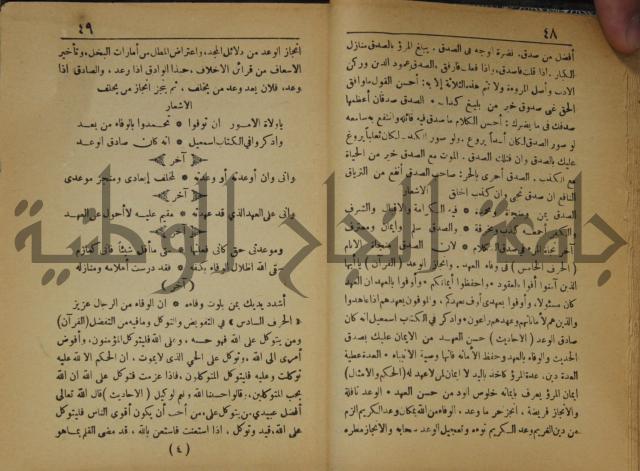 ٤٨
أفضل من صدق. نضرة أوجه فى الصدق. يبلغ المرؤ بالصدق منازل
الكبار. اذا قلت فاصدق، واذا فعلت فارفق، الصدق عمود الدين وركن
الادب وأصل المروءة ولا تتم هذه الثلاثة إلا به: أحسن القول ماوافق
الحق غبى صدوق خير من بليغ كذا * الصدق صدقان أعظمهما
صدقك فى ما يضرك: أحسن الكلام ما صدق فيه قائله وانتفع به سامعه
لو صور الصدق لكان أسداً يروع. ولو صور الكذب لكان ثعلباً يروغ
عليك بالصدق وان قتلك الصدق. الموت مع الصدق خير من الحياة
مع الكذب. الصدق أحرى بالحر: صاحب الصدق أنفع من الترياق
النافع ان صدق نجى وان كذب اختلق الاشعار
الصدق
( الحرف الخامس ) فى وفاء العهد. وانجاز الوعد ( القرآن ) ياأيها
الذين آمنوا أوفوا بالعقود * واحفظوا أيمانكم * وأوفوا بالعهد ان العهد
كان مسئولا. وأوفوا بعهدى أوف بعهدكم. والموفون بعهدهم اذا عاهدوا
والذين هم لأماناتهم وعهدهم راعون * واذكر فى الكتاب اسمعيل انه كان
صادق الوعد ( الاحاديث ) حسن العهد من الايمان عليك بصدق
الحديث والوفاء بالعهد وحفظ الأمانة فانها وصية الأنبياء * العدة عطية
العدة دين. عدة المرؤ كاخذ باليد لا ايمان لمن لا عهد له ( الحكم والامثال )
ايمان المرؤ يعرف بايمانه خلوص الود من حسن العهد * الوعد نافلة
والانجاز فريضة، أنجز حر ما وعد، الوفاء من الله بمكان وعد الكريم ألزم
من دين الغريم وعد الكريم نوءه وتعجيل الوعد سحابه والانجاز مطره
٤٩
انجاز الوعد من دلائل المجد، واعتراض المطل من أمارات البخل، وتأخير
الاسعاف من قرائن الاخلاف، حبذا الوادق اذا وعد، والصادق اذا
وعد، فلان يعد وعد من يخلف، ثم ينجز انجاز من يحلف
الاشعار
ياولاة الامور ان توفوا * تحمدوا بالوفاء من بعد
واذكروا فى الكتاب اسمعيل * انه كان صادق الوعد
آخر
وانى وان أوعدته أو وعدته * لمخلف إيعادى ومنجز موعدى
آخر
وانى على العهد الذى قد عهدته * مقيم عليه لا أحول على العهد
آخر
وموعدتى حق كانى فعلتها * متى ماأقل شيئاً فانى كغارم
سقى الله اطلال الوفاء بكفه * فقد درست أعلامه ومنازله
آخر
أشدد يديك بمن بلوت وفاءه * ان الوفاء من الرجال عزيز
« الحرف السادس » فى التفويض والتوكل وما فيه من التفضل ( القرآن )
ومن يتوكل على الله فهو حسبه، وعلى الله فليتوكل المؤمنون، وأفوض
أمرى الى الله، وتوكل على الحى الذى لا يموت، ان الحكم الا لله عليه
توكلت وعليه فليتوكل المتوكلون، فاذا عزمت فتوكل على الله ان الله
يحب المتوكلين، وقالوا حسبنا الله ونعم الوكيل ( الاحاديث ) قال الله تعالى
أفضل عبيدى من يتوكل على، من أحب أن يكون أقوى الناس فليتوكل
على الله، قيد وتوكل، اذا استعنت فاستعن بالله، قد مضى القلم بما هو
( ٤ )
جامعة النجاح الوطنية